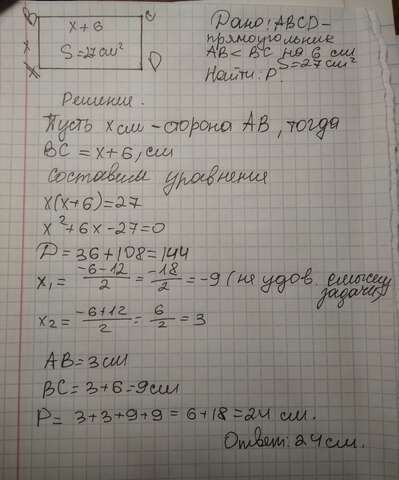 B x+6 C
x S=27см² D
A
Дано: ABCD-
прямоугольник
AB<BC на 6 см
S=27см²
Найти: P.
Решение.
Пусть x см - сторона AB, тогда
BC = x+6, см
Составим уравнения
x(x+6)=27
x²+6x-27=0
D=36+108=144
x₁= -6-12/2 = -18/2 = -9 (не удов. смыслу задачи)
x₂= -6+12/2 = 6/2 = 3
AB=3см
BC=3+6=9см
P= 3+3+9+9=6+18=24 см.
Ответ: 24см.